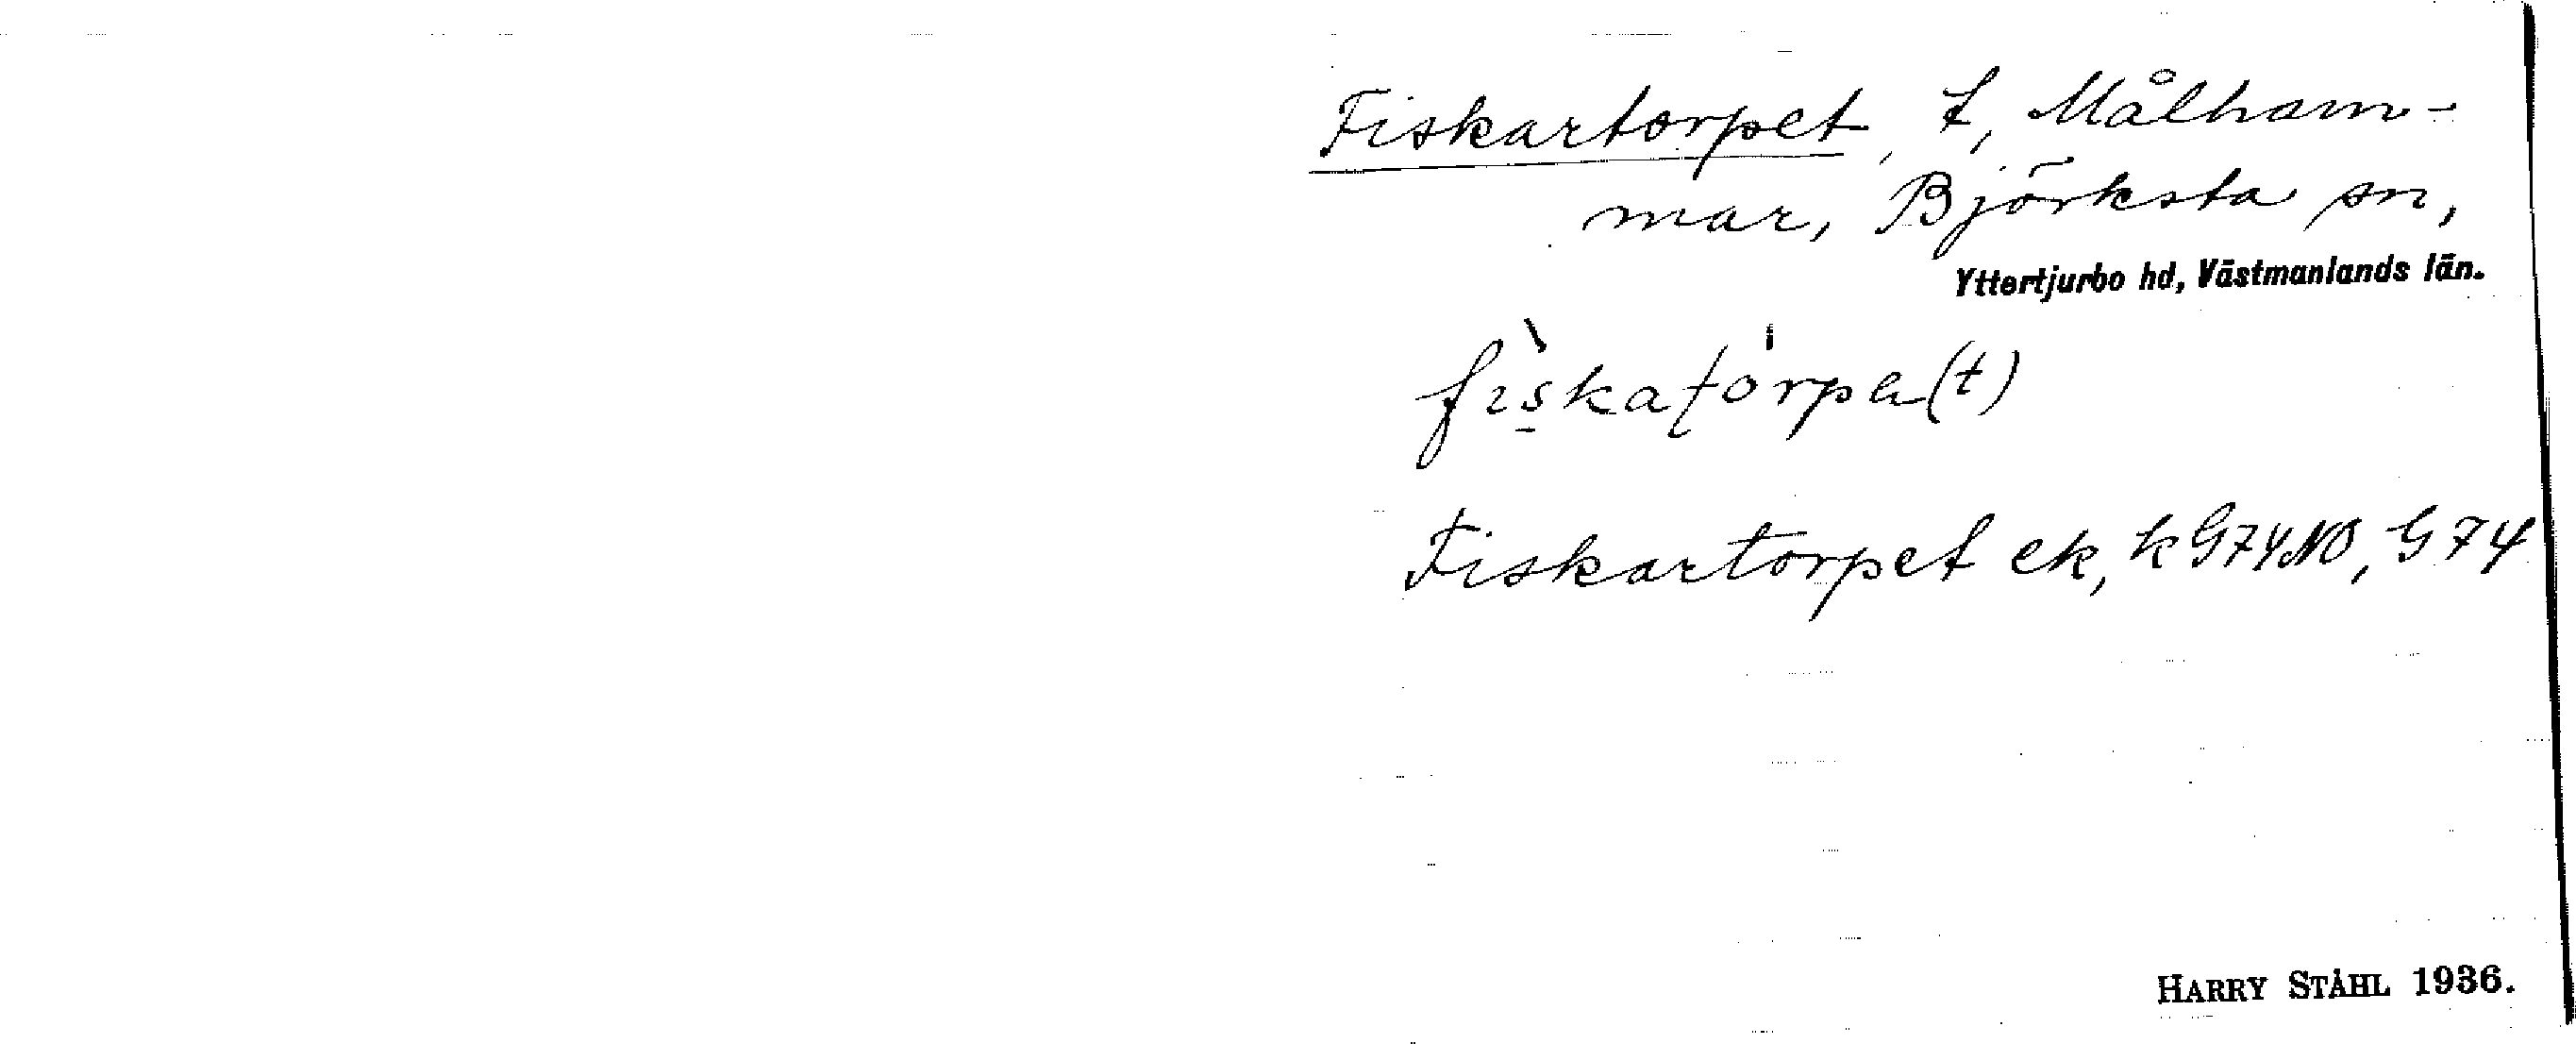 Fiskartorpet, t, Målham-
mar, Björksta sn,
Yttertjurbo hd, Västmanlands län.
fiskatorpe(t)
Fiskartorpet ek, k G74NO, G74
HARRY STÅHL 1936.